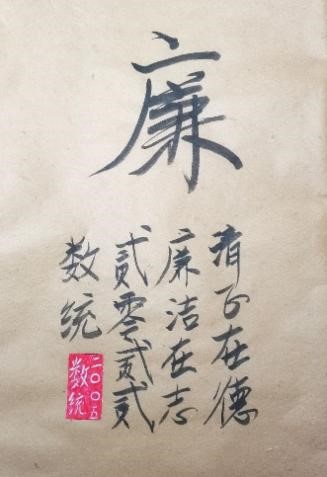 廉
清正在德
廉洁在志
貳零贰貳
数统
二〇〇五
数统